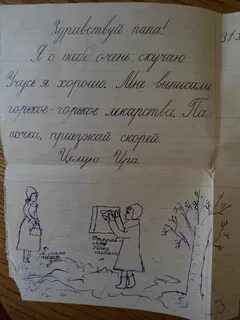 Здравствуй папи!
Я о тебе очень скучаю
Учусь я хорошо. Мне выписали
горькое-горькое лекарства. Па
почка, приезжай скорей.
Целую Ира.